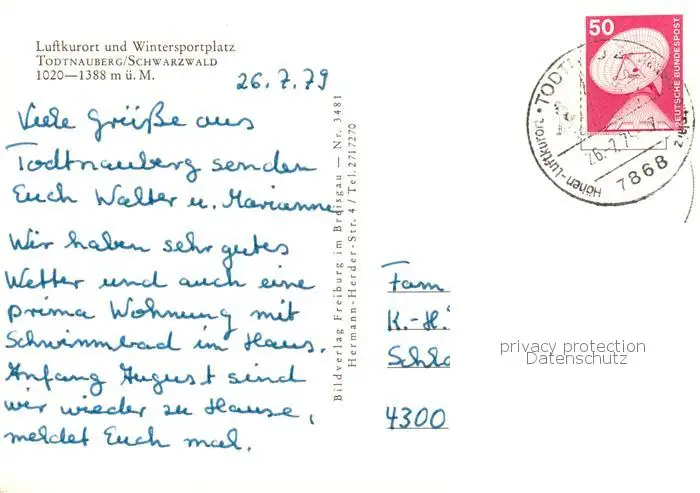 Luftkurort und Wintersportplatz
TODTNAUBERG/SCHWARZWALD
1020—1388 m ü. M.
26.7.79
Viele Grüße aus
Todtnauberg senden
Euch Walter u. Marianne
Wir haben sehr gutes
Wetter und auch eine
prima Wohnung mit
Schwimmbad im Haus.
Anfang August sind
wir wieder zu Hause,
meldet Euch mal.
Bildverlag Freiburg im Breisgau — Nr. 3481
Hermann-Herder-Str. 4 / Tel. 2717270
50
DEUTSCHE BUNDESPOST
Höhen-Luftkurort • TODT
26.7.79
7868
Fam
K.-H.
Schl
4300
privacy protection
Datenschutz